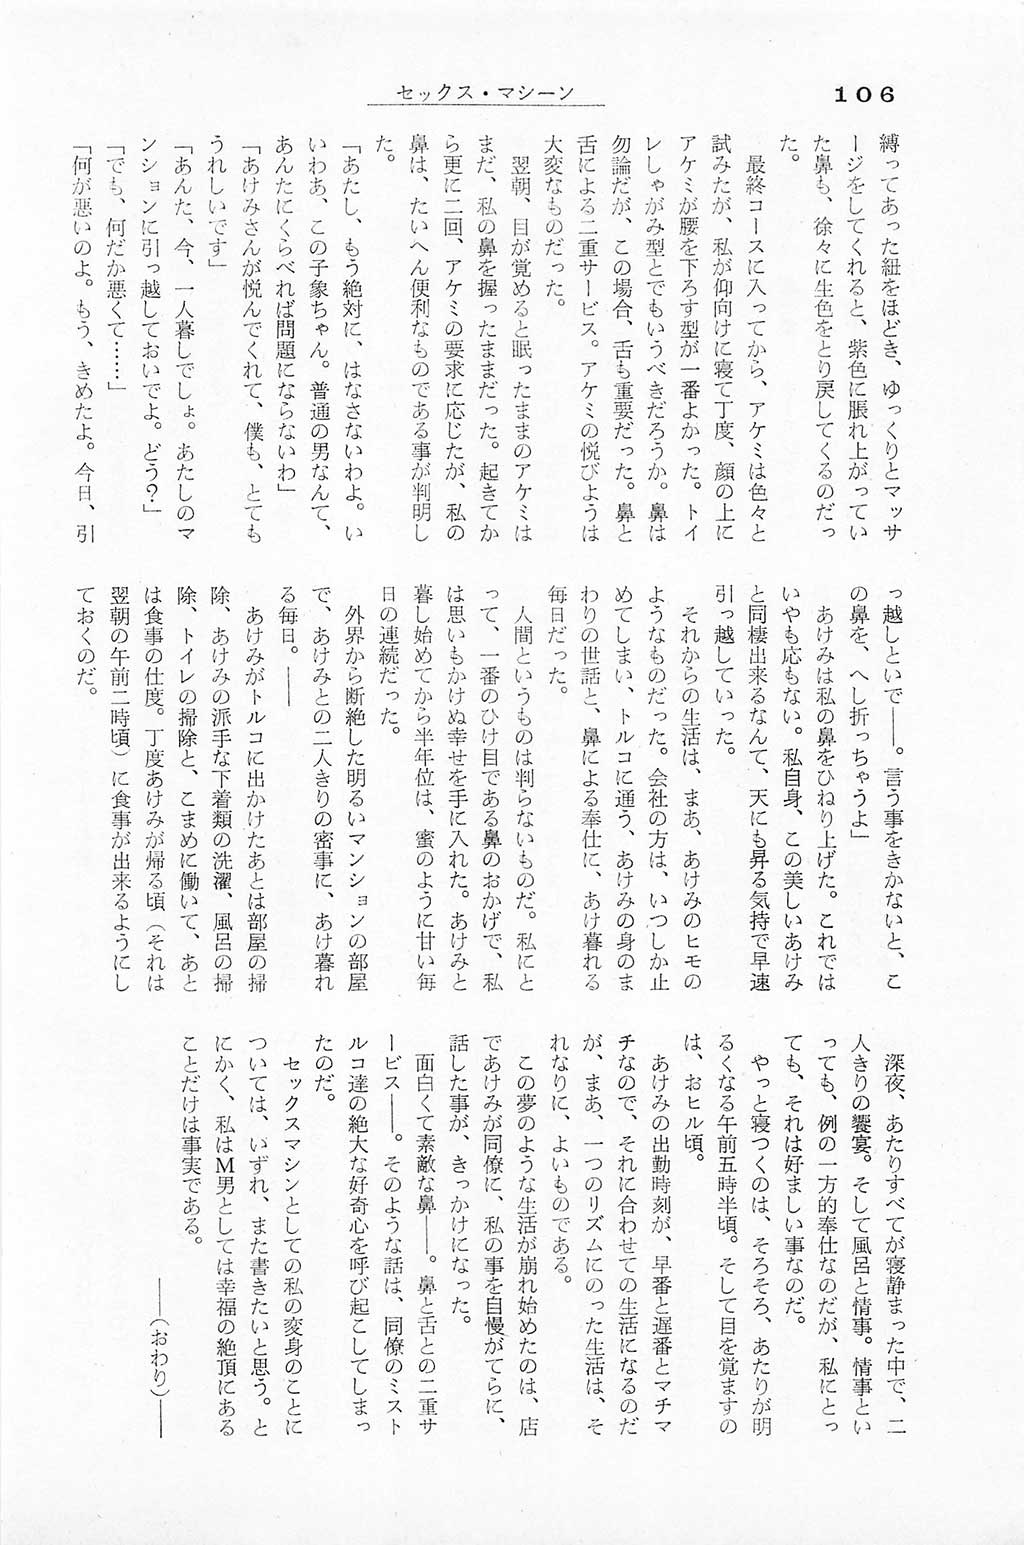 セックス・マシーン
106
縛ってあった紐をほどき、ゆっくりとマッサ
ージをしてくれると、紫色に脹れ上がってい
た鼻も、徐々に生色をとり戻してくるのだっ
た。
　最終コースに入ってから、アケミは色々と
試みたが、私が仰向けに寝て丁度、顔の上に
アケミが腰を下ろす型が一番よかった。トイ
レしゃがみ型とでもいうべきだろうか。鼻は
勿論だが、この場合、舌も重要だった。鼻と
舌による二重サービス。アケミの悦びようは
大変なものだった。
　翌朝、目が覚めると眠ったままのアケミは
まだ、私の鼻を握ったままだった。起きてか
ら更に二回、アケミの要求に応じたが、私の
鼻は、たいへん便利なものである事が判明し
た。
「あたし、もう絶対に、はなさないわよ。い
いわあ、この子象ちゃん。普通の男なんて、
あんたにくらべれば問題にならないわ」
「あけみさんが悦んでくれて、僕も、とても
うれしいです」
「あんた、今、一人暮しでしょ。あたしのマ
ンションに引っ越しておいでよ。どう？」
「でも、何だか悪くて……」
「何が悪いのよ。もう、きめたよ。今日、引
っ越しといで――。言う事をきかないと、こ
の鼻を、へし折っちゃうよ」
　あけみは私の鼻をひねり上げた。これでは
いやも応もない。私自身、この美しいあけみ
と同棲出来るなんて、天にも昇る気持で早速
引っ越していった。
　それからの生活は、まあ、あけみのヒモの
ようなものだった。会社の方は、いつしか止
めてしまい、トルコに通う、あけみの身のま
わりの世話と、鼻による奉仕に、あけ暮れる
毎日だった。
　人間というものは判らないものだ。私にと
って、一番のひけ目である鼻のおかげで、私
は思いもかけぬ幸せを手に入れた。あけみと
暮し始めてから半年位は、蜜のように甘い毎
日の連続だった。
　外界から断絶した明るいマンションの部屋
で、あけみとの二人きりの密事に、あけ暮れ
る毎日。――
　あけみがトルコに出かけたあとは部屋の掃
除、あけみの派手な下着類の洗濯、風呂の掃
除、トイレの掃除と、こまめに働いて、あと
は食事の仕度。丁度あけみが帰る頃（それは
翌朝の午前二時頃）に食事が出来るようにし
ておくのだ。
　深夜、あたりすべてが寝静まった中で、二
人きりの饗宴。そして風呂と情事。情事とい
っても、例の一方的奉仕なのだが、私にとっ
ても、それは好ましい事なのだ。
　やっと寝つくのは、そろそろ、あたりが明
るくなる午前五時半頃。そして目を覚ますの
は、おヒル頃。
　あけみの出勤時刻が、早番と遅番とマチマ
チなので、それに合わせての生活になるのだ
が、まあ、一つのリズムにのった生活は、そ
れなりに、よいものである。
　この夢のような生活が崩れ始めたのは、店
であけみが同僚に、私の事を自慢がてらに、
話した事が、きっかけになった。
　面白くて素敵な鼻――。鼻と舌との二重サ
ービス――。そのような話は、同僚のミスト
ルコ達の絶大な好奇心を呼び起こしてしまっ
たのだ。
　セックスマシンとしての私の変身のことに
ついては、いずれ、また書きたいと思う。と
にかく、私はＭ男としては幸福の絶頂にある
ことだけは事実である。
――（おわり）――